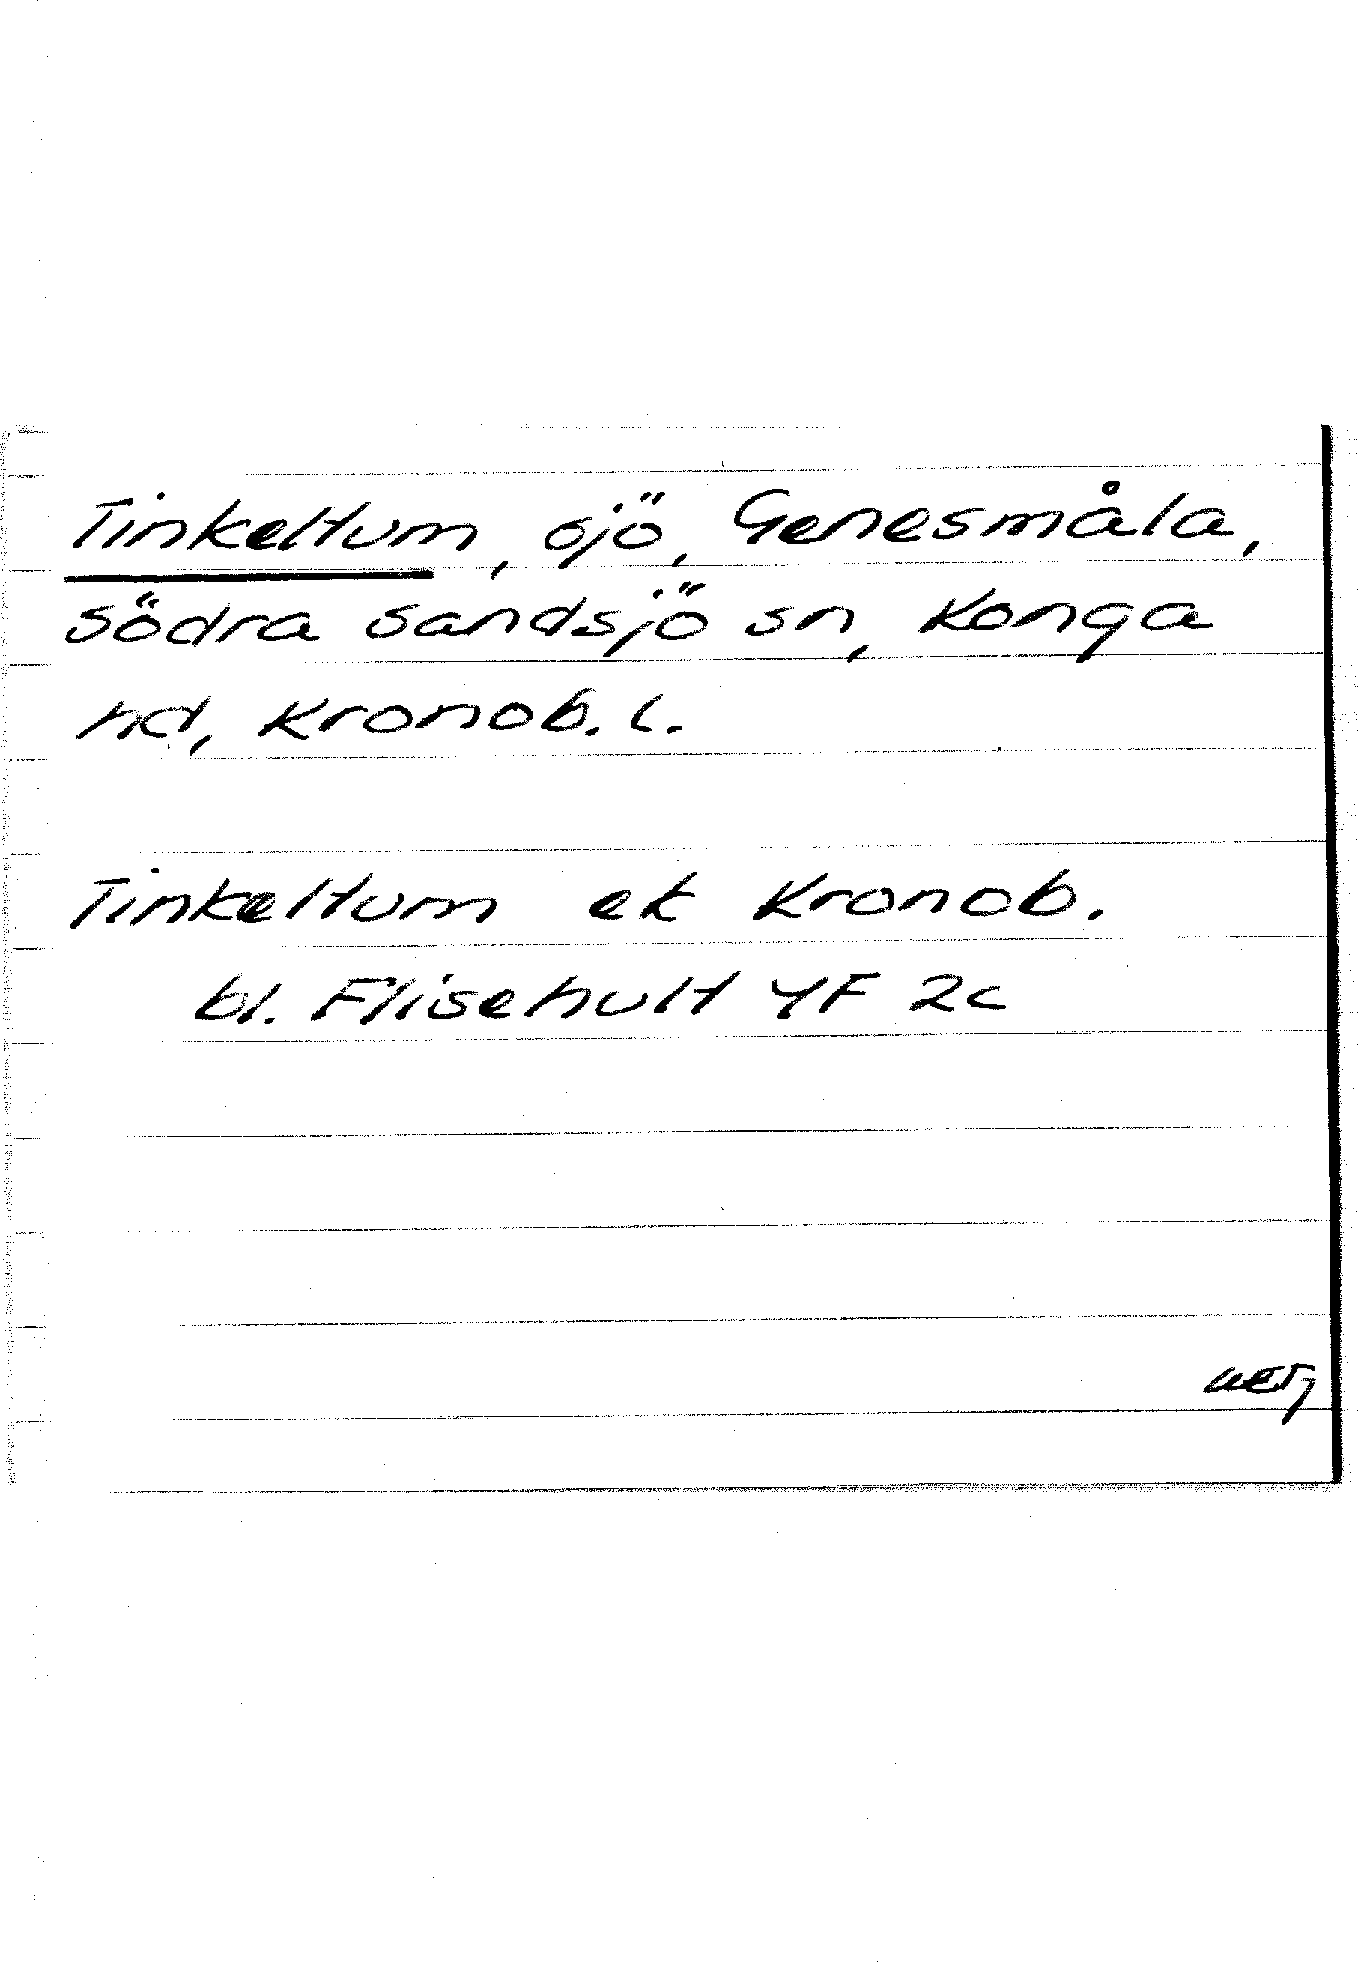 Tinkeltum, sjö, Genesmåla,
södra sandsjö sn, Konga
hd, Kronob. l.
Tinkeltum ek Kronob.
bl. Flisehult 4F 2c